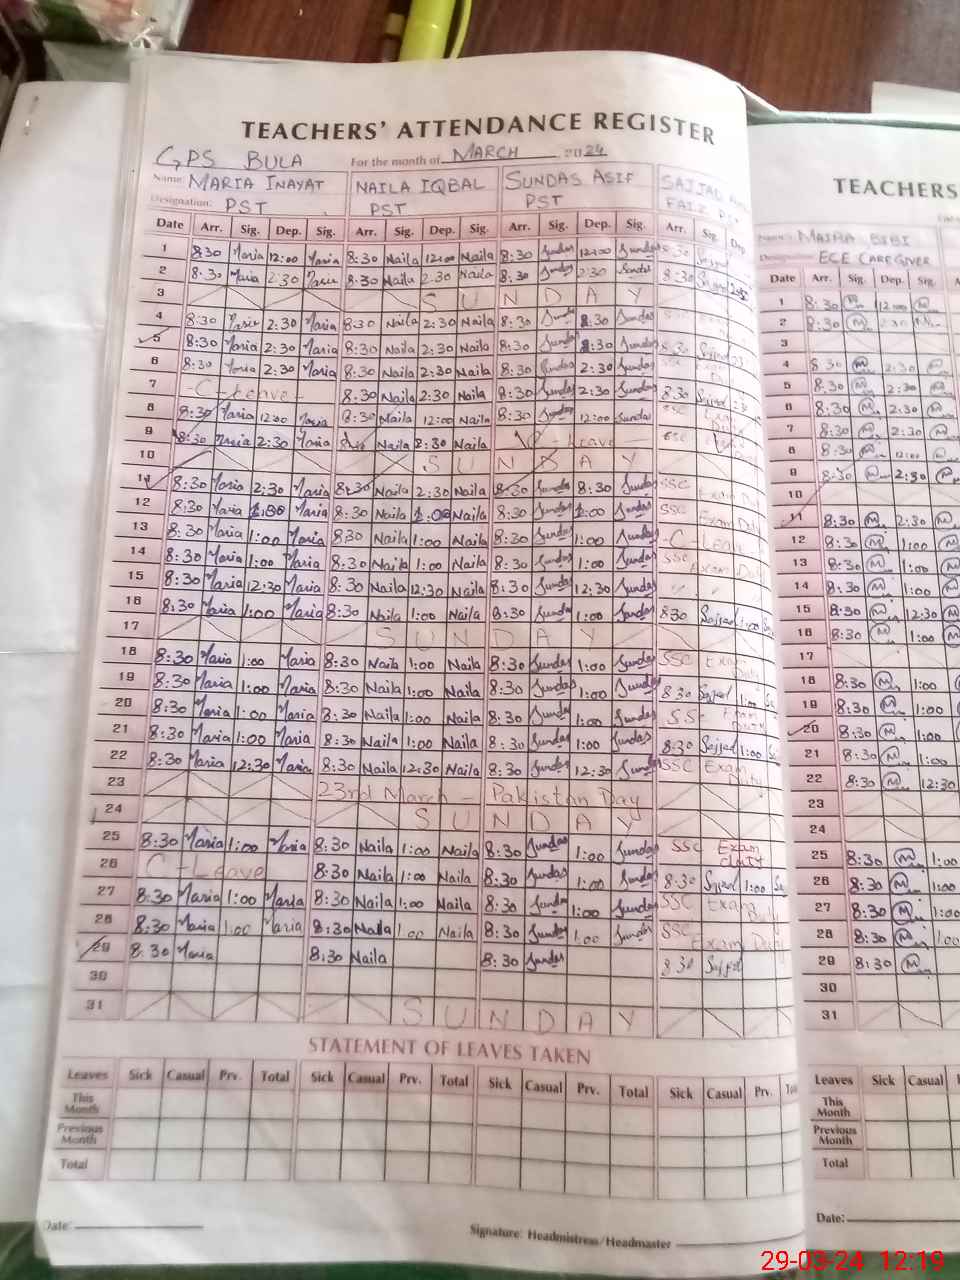 TEACHERS' ATTENDANCE REGISTER
GPS BULA For the month of MARCH 2024
Name: MARIA INAYAT NAILA IQBAL SUNDAS ASIF SAJJAD
Designation: PST PST PST FAIZ PST
Date Arr. Sig. Dep. Sig. Arr. Sig. Dep. Sig. Arr. Sig. Dep. Sig. Arr. Sig. Dep.
1 8:30 Maria 12:00 Maria 8:30 Naila 12:00 Naila 8:30 Sundas 12:00 Sundas 8:30 Sajjad
2 8:30 Maria 2:30 Maria 8:30 Naila 2:30 Naila 8:30 Sundas 2:30 Sundas 8:30 Sajjad
3 SUNDAY
4 8:30 Maria 2:30 Maria 8:30 Naila 2:30 Naila 8:30 Sundas 8:30 Sundas
5 8:30 Maria 2:30 Maria 8:30 Naila 2:30 Naila 8:30 Sundas 8:30 Sundas 8:30 Sajjad
6 8:30 Maria 2:30 Maria 8:30 Naila 2:30 Naila 8:30 Sundas 2:30 Sundas SSC Exam Duty
7 C-Leave 8:30 Naila 2:30 Naila 8:30 Sundas 2:30 Sundas 8:30 Sajjad
8 8:30 Maria 12:00 Maria 8:30 Naila 12:00 Naila 8:30 Sundas 12:00 Sundas SSC Exam Duty
9 8:30 Maria 2:30 Maria Naila 2:30 Naila C-Leave SSC Exam Duty
10 SUNDAY
11 8:30 Maria 2:30 Maria 8:30 Naila 2:30 Naila 8:30 Sundas 8:30 Sundas SSC Exam Duty
12 8:30 Maria 1:00 Maria 8:30 Naila 1:00 Naila 8:30 Sundas 1:00 Sundas SSC Exam Duty
13 8:30 Maria 1:00 Maria 8:30 Naila 1:00 Naila 8:30 Sundas 1:00 Sundas C-Leave
14 8:30 Maria 1:00 Maria 8:30 Naila 1:00 Naila 8:30 Sundas 1:00 Sundas SSC Exam Duty
15 8:30 Maria 12:30 Maria 8:30 Naila 12:30 Naila 8:30 Sundas 12:30 Sundas " "
16 8:30 Maria 1:00 Maria 8:30 Naila 1:00 Naila 8:30 Sundas 1:00 Sundas 8:30 Sajjad 1:00
17 SUNDAY
18 8:30 Maria 1:00 Maria 8:30 Naila 1:00 Naila 8:30 Sundas 1:00 Sundas SSC Exam Duty
19 8:30 Maria 1:00 Maria 8:30 Naila 1:00 Naila 8:30 Sundas 1:00 Sundas 8:30 Sajjad 1:00
20 8:30 Maria 1:00 Maria 8:30 Naila 1:00 Naila 8:30 Sundas 1:00 Sundas SSC Exam Duty
21 8:30 Maria 1:00 Maria 8:30 Naila 1:00 Naila 8:30 Sundas 1:00 Sundas 8:30 Sajjad 1:00
22 8:30 Maria 12:30 Maria 8:30 Naila 12:30 Naila 8:30 Sundas 12:30 Sundas SSC Exam Duty
23 23rd March - Pakistan Day
24 SUNDAY
25 8:30 Maria 1:00 Maria 8:30 Naila 1:00 Naila 8:30 Sundas 1:00 Sundas SSC Exam duty
26 C-Leave 8:30 Naila 1:00 Naila 8:30 Sundas 1:00 Sundas 8:30 Sajjad 1:00
27 8:30 Maria 1:00 Maria 8:30 Naila 1:00 Naila 8:30 Sundas 1:00 Sundas SSC Exam Duty
28 8:30 Maria 1:00 Maria 8:30 Naila 1:00 Naila 8:30 Sundas 1:00 Sundas SSC Exam Duty
29 8:30 Maria 8:30 Naila 8:30 Sundas 8:30 Sajjad
30
31 SUNDAY
STATEMENT OF LEAVES TAKEN
Leaves Sick Casual Prv. Total Sick Casual Prv. Total Sick Casual Prv. Total Sick Casual Prv.
This Month
Previous Month
Total
Date:
Signature: Headmistress/Headmaster
TEACHERS
Name: MAIRA BIBI
Designation: ECE CAREGIVER
Date Arr. Sig. Dep. Sig.
1 8:30 M 12:00 M
2 8:30 M 2:30
3
4 8:30 M 2:30 M
5 8:30 M 2:30 M
6 8:30 M 2:30 M
7 8:30 M 2:30 M
8 8:30 M 12:00 M
9 8:30 M 2:30 M
10
11 8:30 M 2:30 M
12 8:30 M 1:00 M
13 8:30 M 1:00 M
14 8:30 M 1:00 M
15 8:30 M 12:30 M
16 8:30 M 1:00 M
17
18 8:30 M 1:00
19 8:30 M 1:00
20 8:30 M 1:00
21 8:30 M 1:00
22 8:30 M 12:30
23
24
25 8:30 M 1:00
26 8:30 M 1:00
27 8:30 M 1:00
28 8:30 M 1:00
29 8:30 M
30
31
Leaves Sick Casual
This Month
Previous Month
Total
Date:
29-03-24 12:19